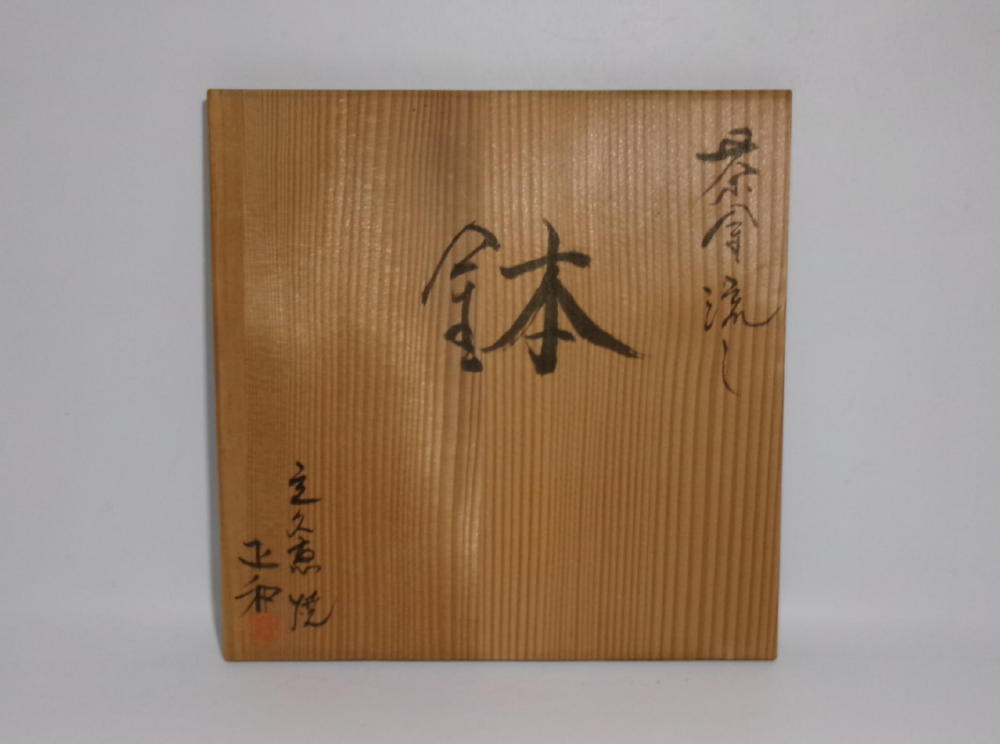 茶金流し
鉢
立久恵焼
正和